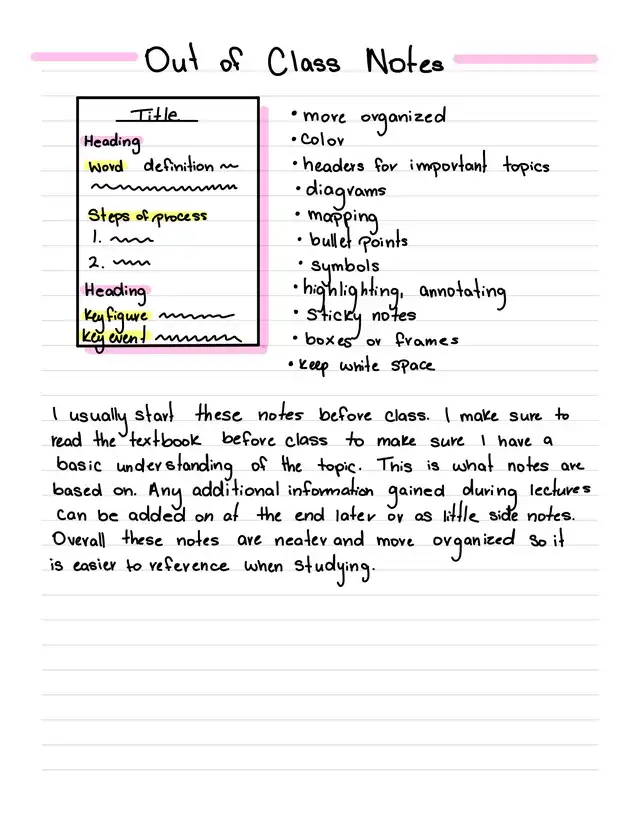 Out of Class Notes
Title
Heading
Word definition
Steps of process
1.
2.
Heading
Key figure
Key event
• more organized
• Color
• headers for important topics
• diagrams
• mapping
• bullet points
• symbols
• highlighting, annotating
• sticky notes
• boxes or frames
• keep white space
I usually start these notes before class. I make sure to
read the textbook before class to make sure I have a
basic understanding of the topic. This is what notes are
based on. Any additional information gained during lectures
can be added on at the end later or as little side notes.
Overall these notes are neater and more organized so it
is easier to reference when studying.